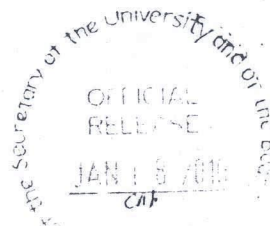 the Secretary of the University and of the
OFFICIAL
RELEASE
JAN 1 8